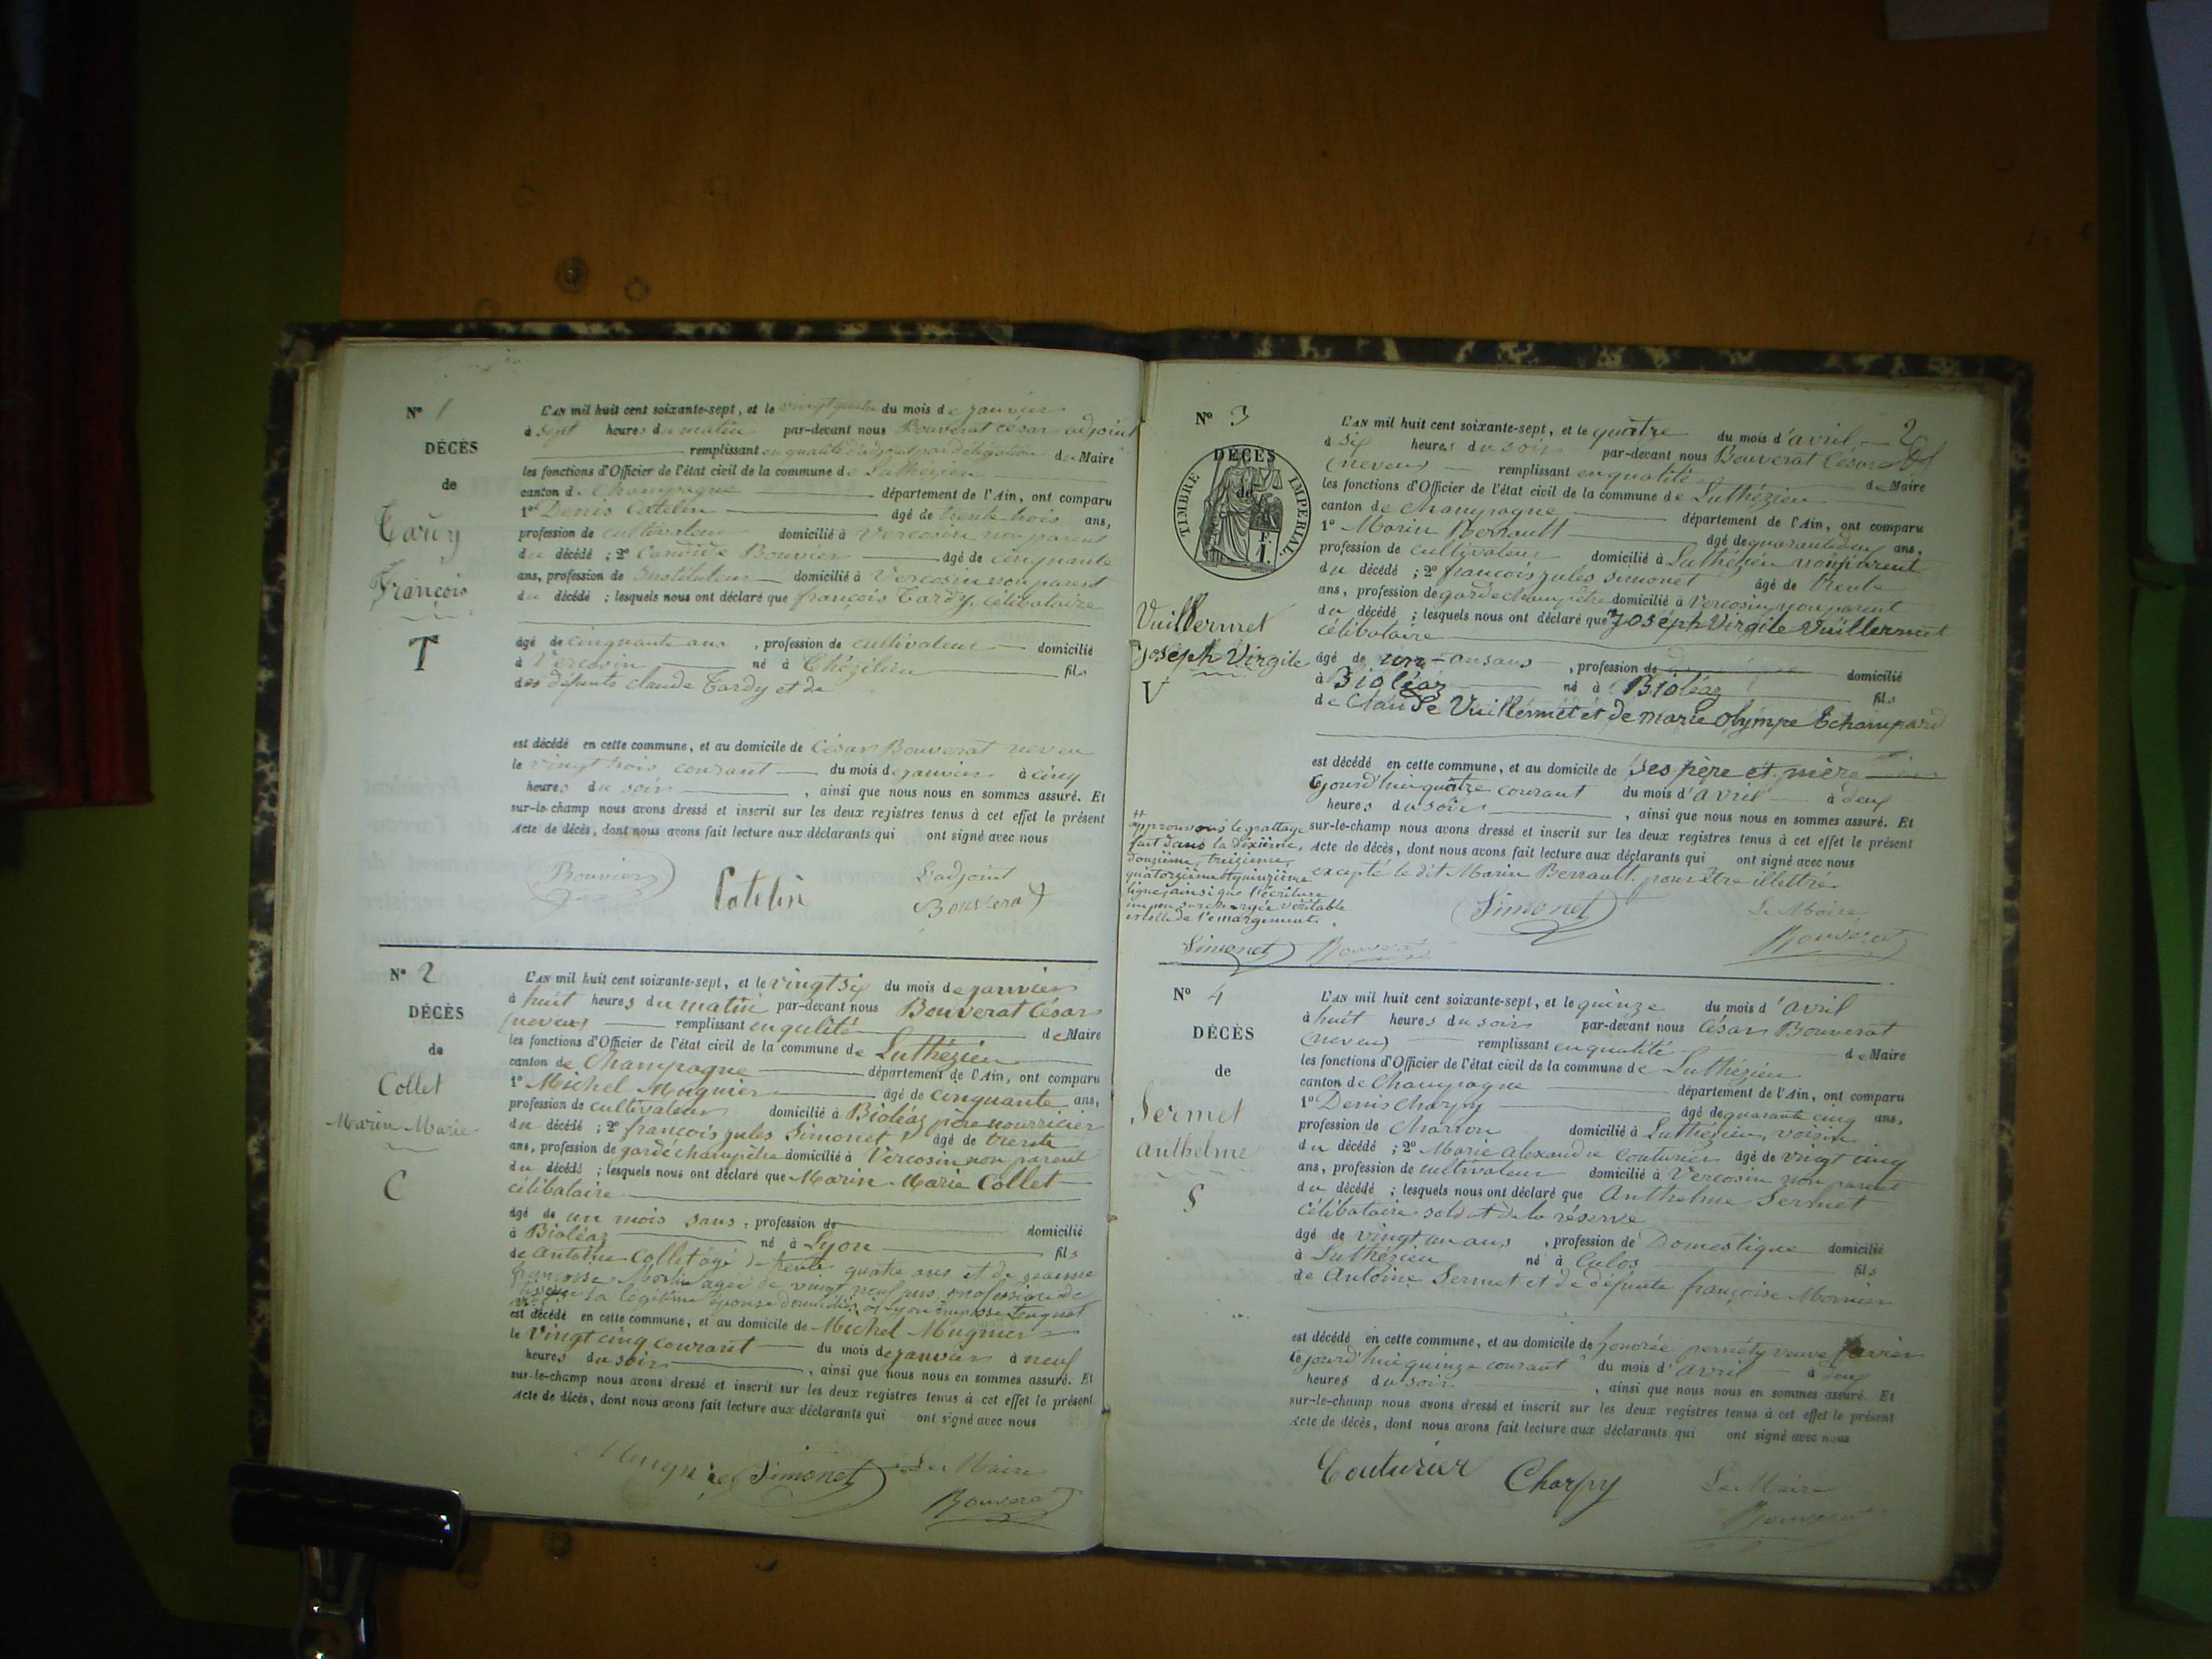 N° 1
DÉCÈS
de
Tardy
François
T
L'AN mil huit cent soixante-sept, et le vingt quatre du mois de janvier
à sept heures du matin par-devant nous Bouverat César adjoint
remplissant en qualité d'adjoint par délégation de Maire
les fonctions d'Officier de l'état civil de la commune de Luthézieu
canton de Champagne département de l'Ain, ont comparu
1° Denis Catelin âgé de trente trois ans,
profession de cultivateur domicilié à Vercosin non parent
du décédé ; 2° Candide Bouvier âgé de cinquante
ans, profession de Instituteur domicilié à Vercosin non parent
du décédé ; lesquels nous ont déclaré que françois Tardy, célibataire
âgé de cinquante ans , profession de cultivateur domicilié
à Vercosin né à Chézilieu fils
des défunts claude Tardy et de
est décédé en cette commune, et au domicile de César Bouverat neveu
le vingt trois courant du mois de janvier à cinq
heures du soir , ainsi que nous nous en sommes assuré. Et
sur-le-champ nous avons dressé et inscrit sur les deux registres tenus à cet effet le présent
Acte de décès, dont nous avons fait lecture aux déclarants qui ont signé avec nous
Bouvier Catelin L'adjoint
Bouverat
N° 2
DÉCÈS
de
Collet
Marin Marie
C
L'AN mil huit cent soixante-sept, et le vingt six du mois de janvier
à huit heures du matin par-devant nous Bouverat César
(neveu) remplissant en qulité de Maire
les fonctions d'Officier de l'état civil de la commune de Luthézieu
canton de Champagne département de l'Ain, ont comparu
1° Michel Mugnier âgé de cinquante ans,
profession de cultivateur domicilié à Bioléaz père nourricier
du décédé ; 2° françois jules Simonet âgé de trente
ans, profession de garde champêtre domicilié à Vercosin non parent
du décédé ; lesquels nous ont déclaré que Marin Marie Collet
célibataire
âgé de un mois sans , profession de domicilié
à Bioléaz né à Lyon fils
de Antoine Collet âgé de trente quatre ans et de jeanne
françoise Morlin agée de vingt neuf ans, profession de
sa légitime épouse domiciliés à Lyon impasse
est décédé en cette commune, et au domicile de Michel Mugnier
le vingt cinq courant du mois de janvier à neuf
heures du soir , ainsi que nous nous en sommes assuré. Et
sur-le-champ nous avons dressé et inscrit sur les deux registres tenus à cet effet le présent
Acte de décès, dont nous avons fait lecture aux déclarants qui ont signé avec nous
Mugnier Simonet Le Maire
Bouverat
2
N° 3
DÉCÈS
de
TIMBRE IMPÉRIAL
F.
1.
Vuillermet
Joseph Virgile
V
L'AN mil huit cent soixante-sept, et le quatre du mois d'avril
à six heures du soir par-devant nous Bouverat César
(neveu) remplissant en qualité de Maire
les fonctions d'Officier de l'état civil de la commune de Luthézieu
canton de Champagne département de l'Ain, ont comparu
1° Marin Berrault âgé de quarante deux ans,
profession de cultivateur domicilié à Luthézieu non parent
du décédé ; 2° françois jules simonet âgé de trente
ans, profession de garde champêtre domicilié à Vercosin non parent
du décédé ; lesquels nous ont déclaré que Joséph Virgile Vuillermet
célibataire
âgé de un an sans , profession de domicilié
à Bioléaz né à Bioléaz fils
de Claude Vuillermet et de marie olympe Echampard
est décédé en cette commune, et au domicile de ses père et mère
cejourd'hui quatre courant du mois d'avril à deux
heures du soir , ainsi que nous nous en sommes assuré. Et
sur-le-champ nous avons dressé et inscrit sur les deux registres tenus à cet effet le présent
Acte de décès, dont nous avons fait lecture aux déclarants qui ont signé avec nous
excepté le dit Marin Berrault pour être illettré
approuvons le grattage
fait dans la dixième,
douzième, treizième,
quatorzième et quinzième
lignes ainsi que l'écriture
un peu surchargée véritable
est celle de l'emargement.
Simonet Bouverat
Simonet Le Maire
Bouverat
N° 4
DÉCÈS
de
Sermet
Anthelme
S
L'AN mil huit cent soixante-sept, et le quinze du mois d'avril
à huit heures du soir par-devant nous César Bouverat
(neveu) remplissant en qualité de Maire
les fonctions d'Officier de l'état civil de la commune de Luthézieu
canton de Champagne département de l'Ain, ont comparu
1° Denis Charpy âgé de quarante cinq ans,
profession de Charron domicilié à Luthézieu, voisin
du décédé ; 2° Marie Alexandre Couturier âgé de vingt cinq
ans, profession de cultivateur domicilié à Vercosin non parent
du décédé ; lesquels nous ont déclaré que Anthelme Sermet
célibataire soldat de la réserve
âgé de vingt un ans , profession de Domestique domicilié
à Luthézieu né à Culoz fils
de Antoine Sermet et de défunte françoise Mornieu
est décédé en cette commune, et au domicile de honorée perréty veuve
cejourd'hui quinze courant du mois d'avril à deux
heures du soir , ainsi que nous nous en sommes assuré. Et
sur-le-champ nous avons dressé et inscrit sur les deux registres tenus à cet effet le présent
Acte de décès, dont nous avons fait lecture aux déclarants qui ont signé avec nous
Couturier Charpy Le Maire
Bouverat